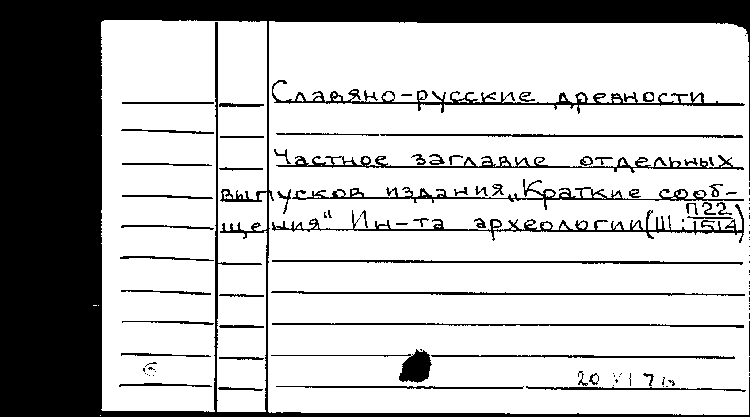 Славяно-русские древности.
Частное заглавие отдельных
выпусков издания „Краткие сооб-
щения“ Ин-та археологии (III: П22/1514)
20 VI 7